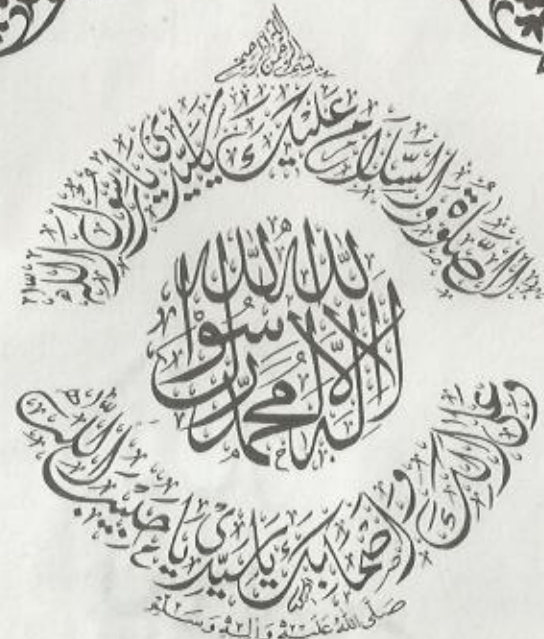 بسم الله الرحمن الرحيم
الصَّلٰوةُ وَالسَّلَامُ عَلَيْكَ يَا سَيِّدِي يَا رَسُولَ اللهِ
لا إله إلا الله محمد رسول الله
وَعَلٰى اٰلِكَ وَاَصْحَابِكَ يَا سَيِّدِي يَا حَبِيبَ اللهِ
صَلَّى اللهُ عَلَيْهِ وَاٰلِهٖ وَسَلَّمَ